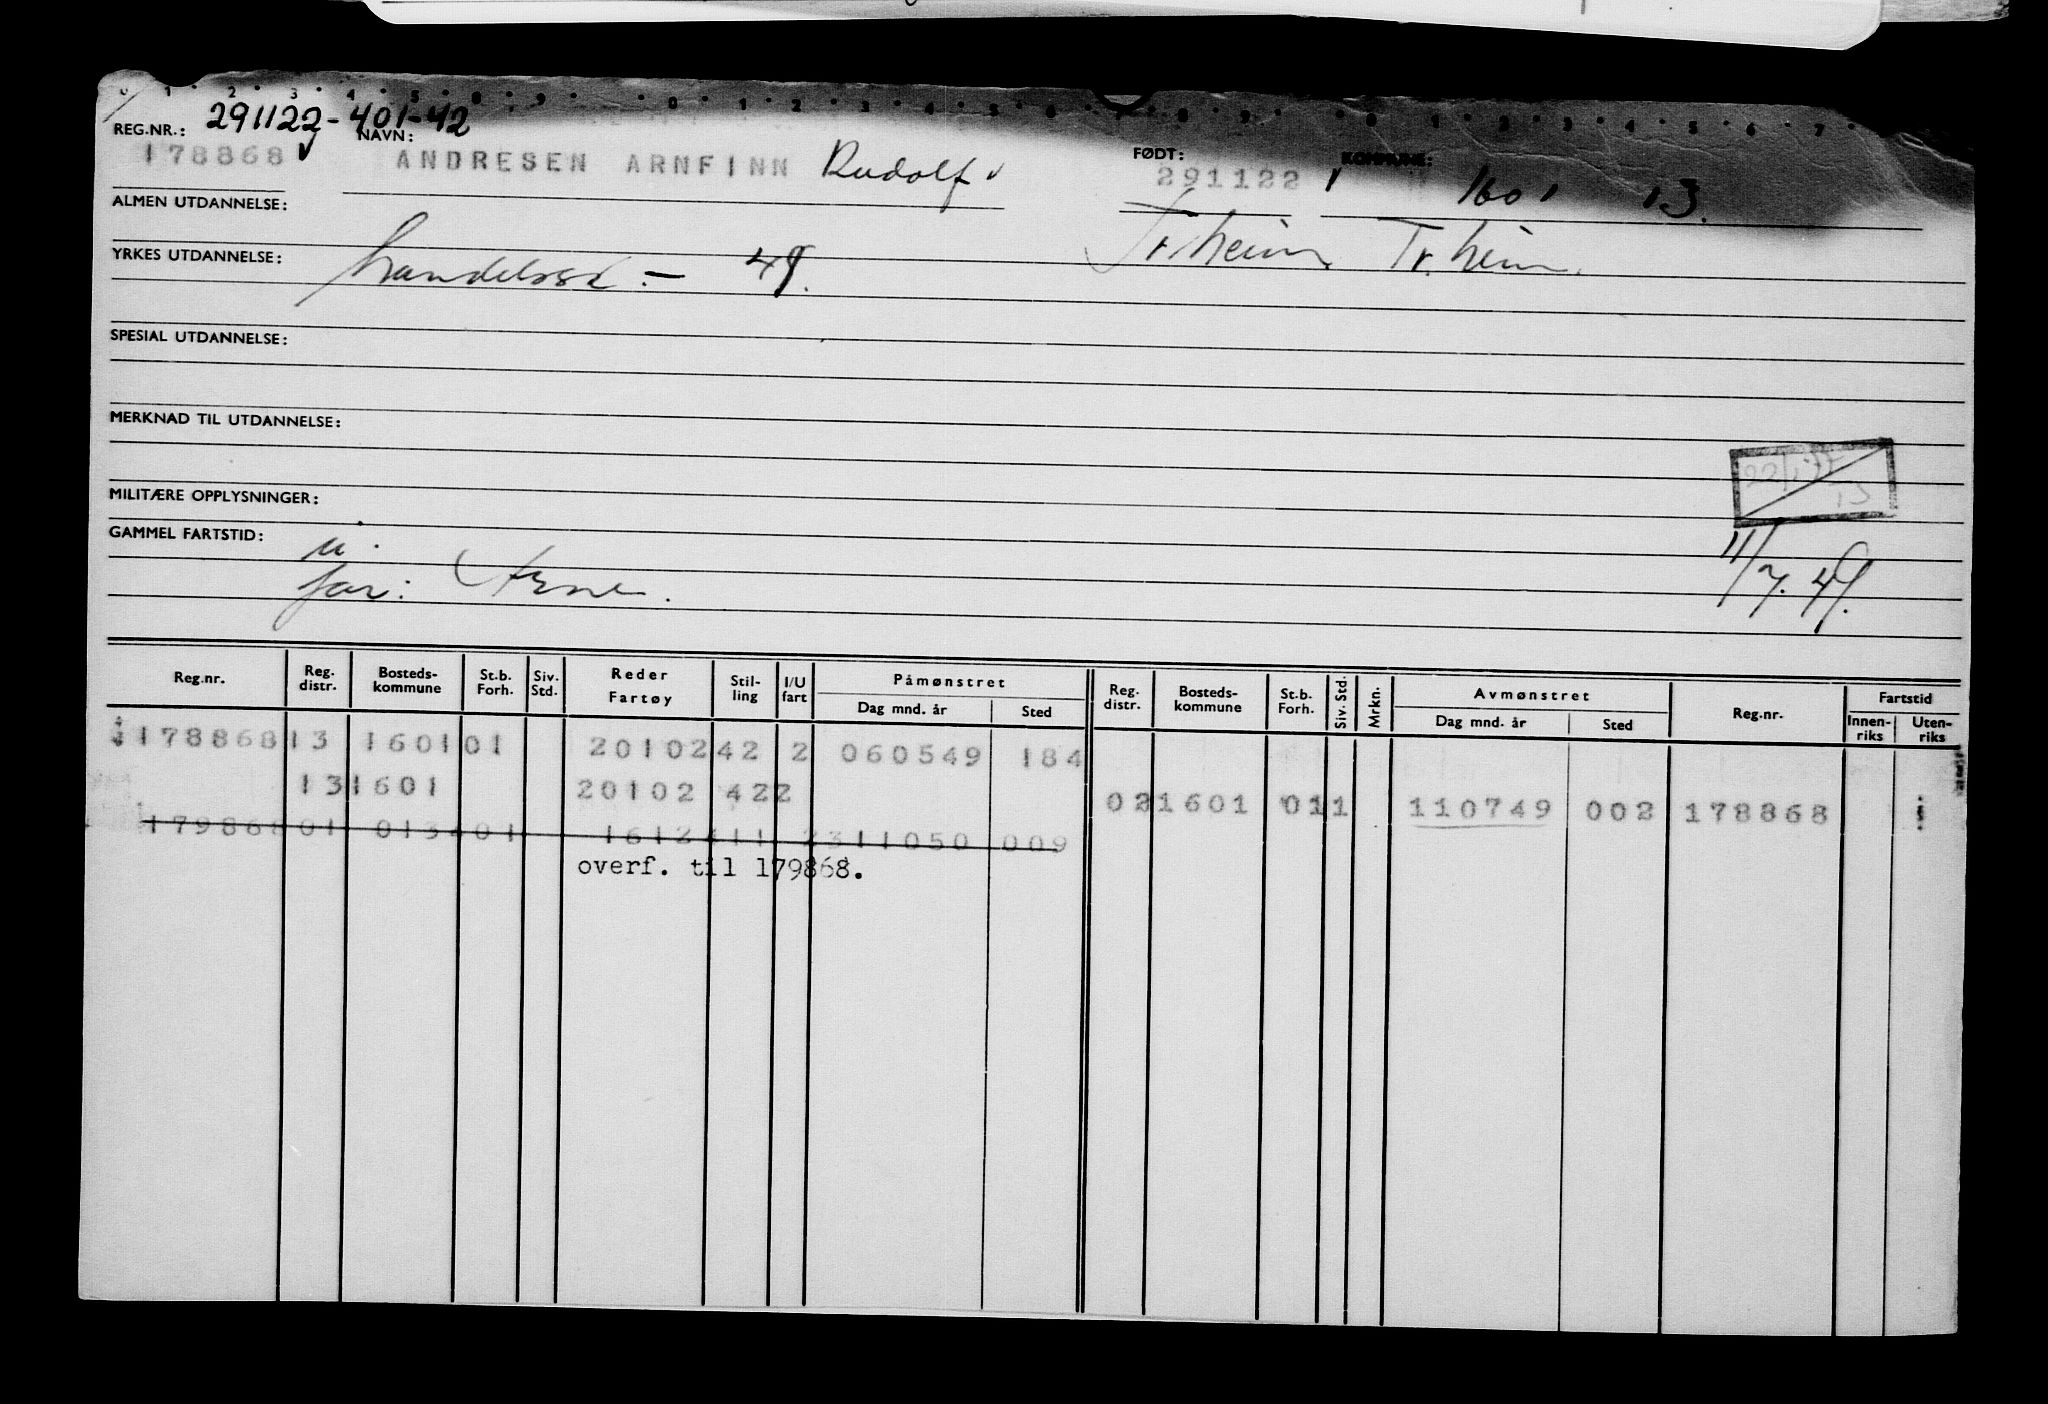 291122-401-42
REG.NR.: NAVN: FØDT: KOMMUNE:
178868 ANDRESEN ARNFINN Rudolf 291122 1601 13.
ALMEN UTDANNELSE: Tr.heim Tr.heim.
YRKES UTDANNELSE: handelssk. - 49.
SPESIAL UTDANNELSE:
MERKNAD TIL UTDANNELSE:
MILITÆRE OPPLYSNINGER:
GAMMEL FARTSTID: u.
far: Arne.
11/7.49.
Reg.nr. Reg. distr. Bosteds-kommune St.b. Forh. Siv. Std. Reder Fartøy Stil-ling I/U fart Påmønstret Dag mnd. år Sted Reg. distr. Bosteds-kommune St.b. Forh. Siv. Std. Mrkn. Avmønstret Dag mnd. år Sted Reg.nr. Fartstid Innen-riks Uten-riks
178868 13 1601 01 20102 42 2 060549 184
13 1601 20102 42 2 02 1601 01 1 110749 002 178868
179868 01 013401 1612411 2 311050 009
overf. til 179868.